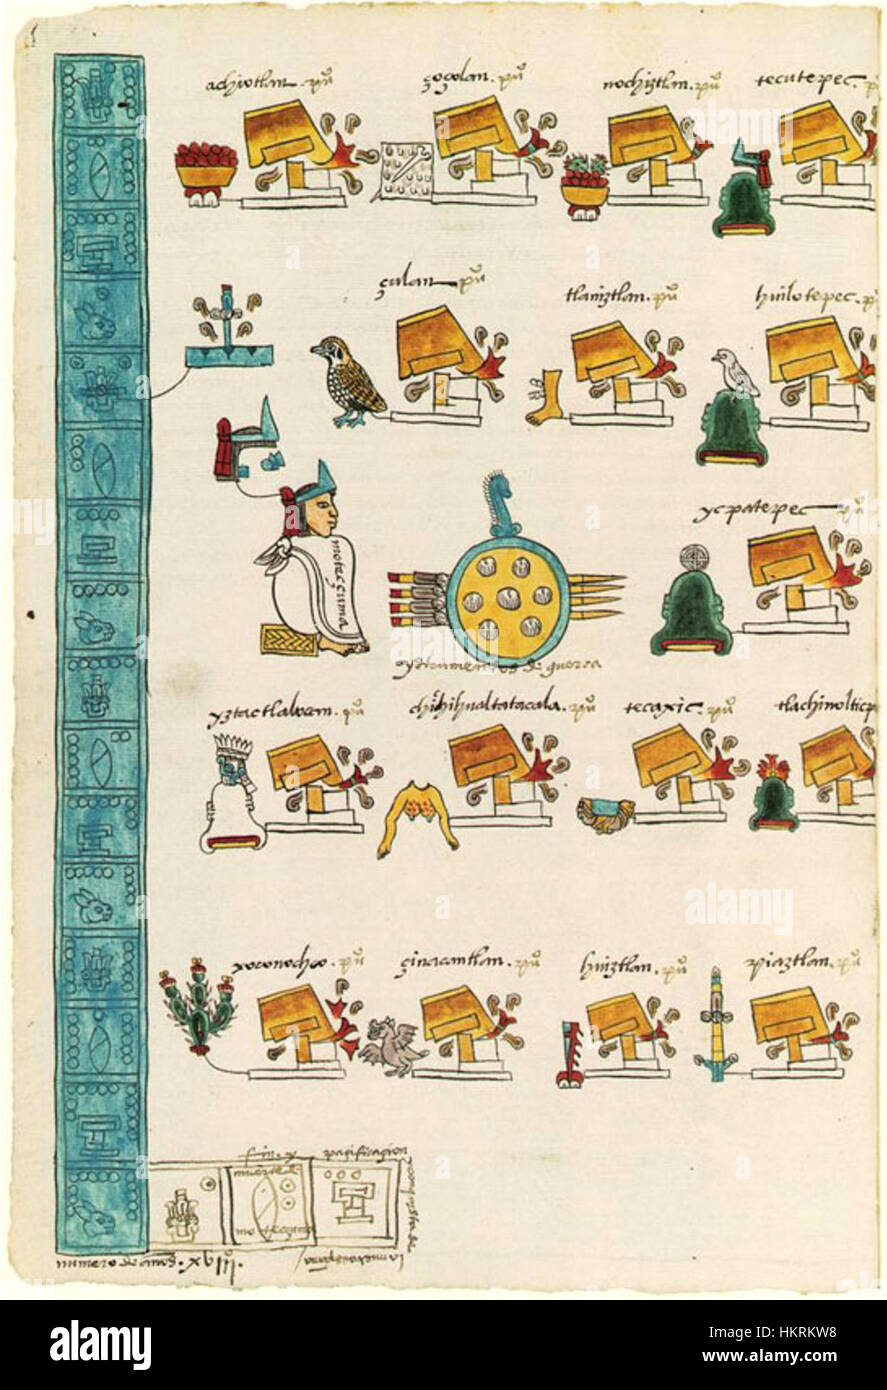 achiotlan. puº
çoçolan. puº
nochiztlan. puº
tecutepec. p
çulan. puº
tlaniztlan. puº
huilotepec. p
motecçuma
ycpatepec puº
ystrumentos de guerra
yztactlalocan. puº
chichihualtatacala. puº
tecaxic. puº
tlachinolticp
xoconochco. puº
çinacantlan. puº
huiztlan. puº
piaztlan. puº
fin. y pacificaçion
muerte de
motecçuma
numero de años. xviii.
alamy
Image ID: HKRKW8
www.alamy.com